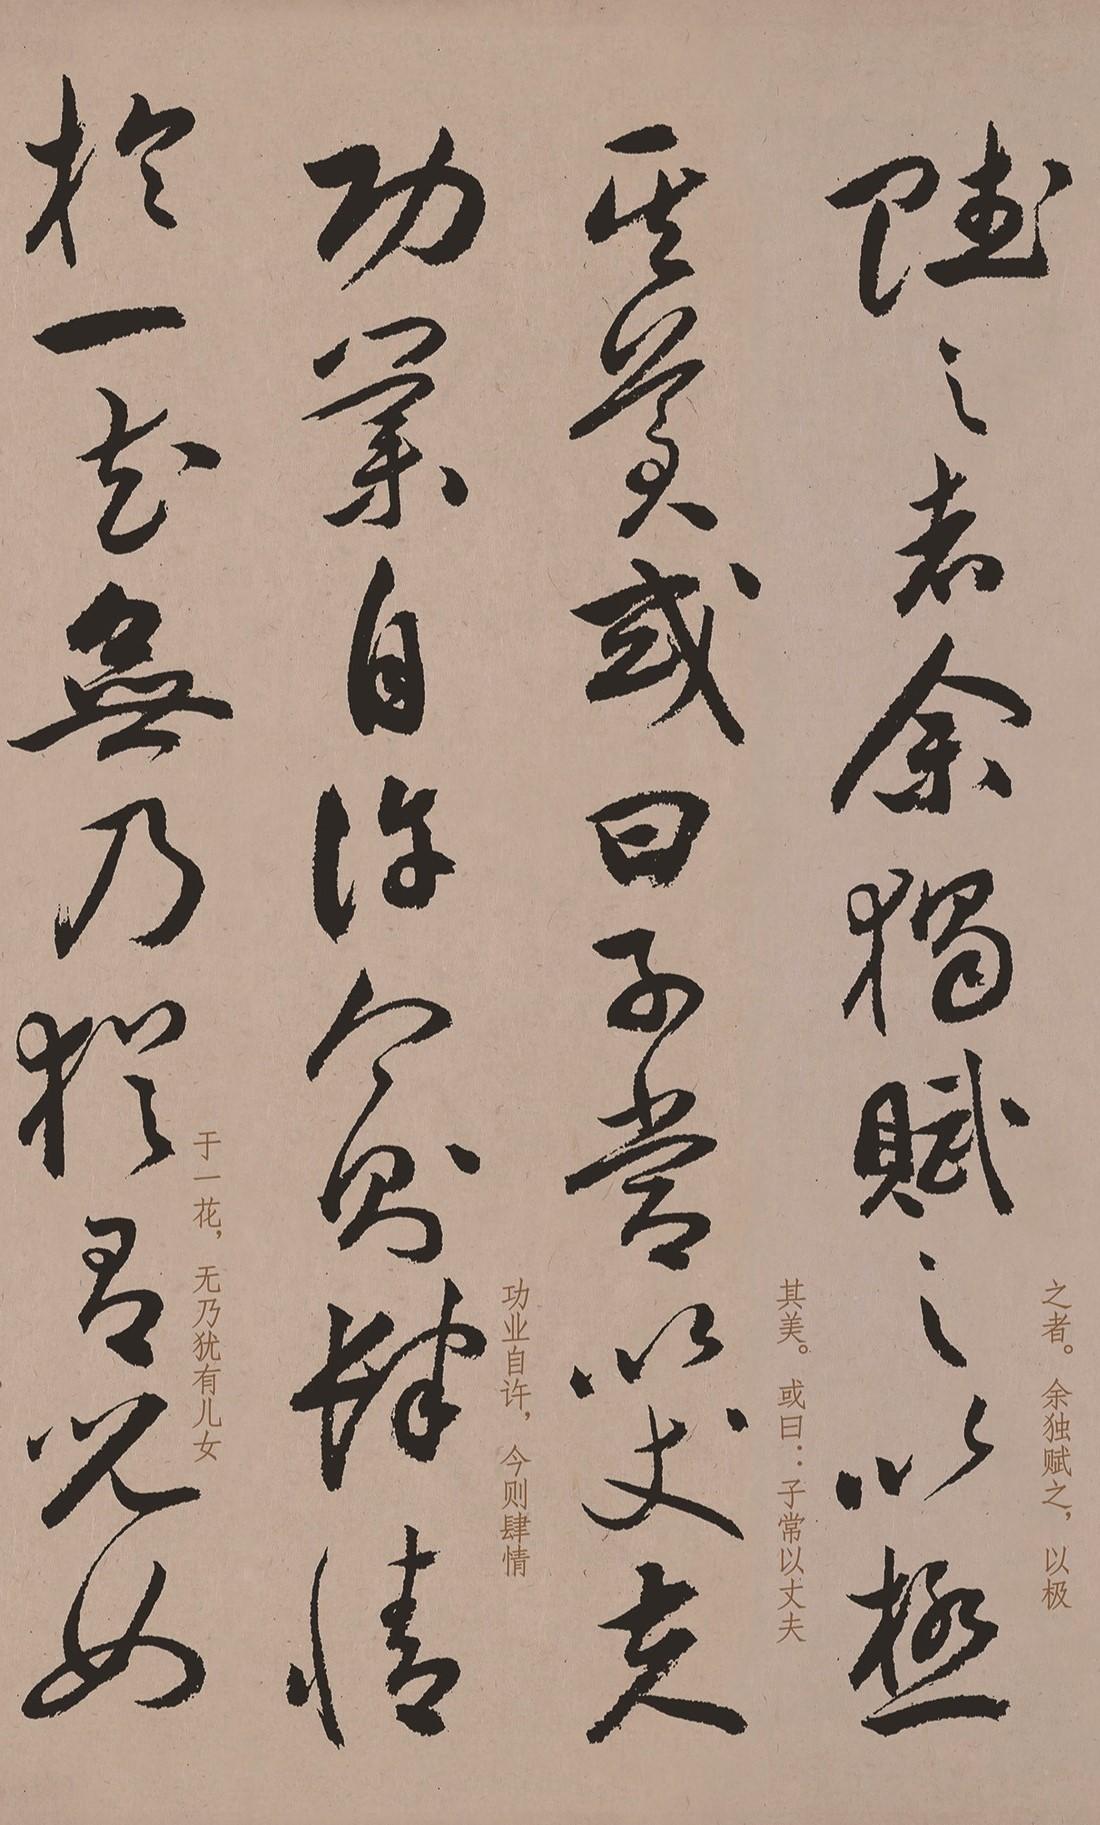 賦之者余獨賦之以極
之者。余独赋之，以极
其美或曰子常以丈夫
其美。或曰：子常以丈夫
功業自許今則肆情
功业自许，今则肆情
於一花無乃猶有兒女
于一花，无乃犹有儿女